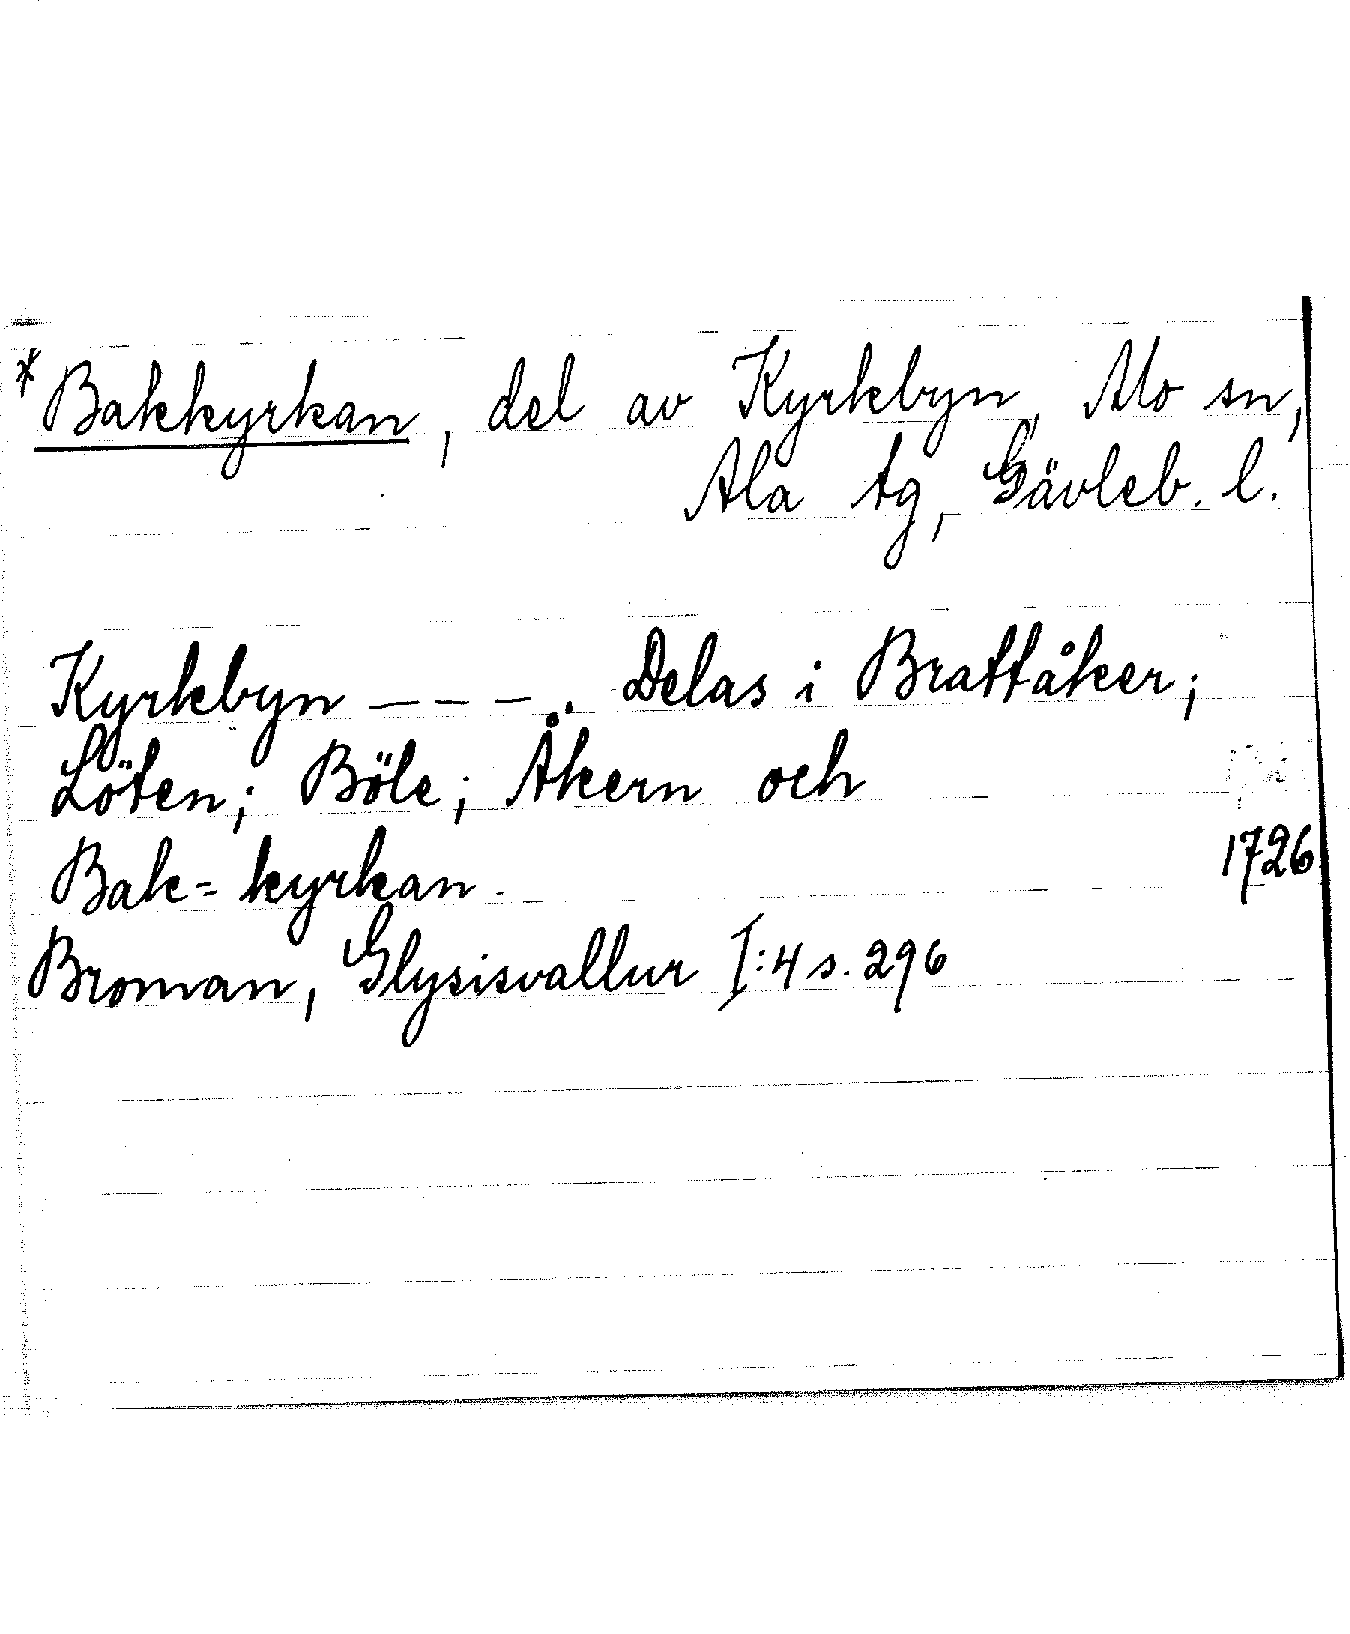 *Bakkyrkan, del av Kyrkbyn, Mo sn,
Ala tg, Gävleb. l.
Kyrkbyn – – – . Delas i Brattåker;
Löten; Böle; Åkern och
Bak= kyrkan. 1726
Broman, Glysisvallur I:4 s. 296